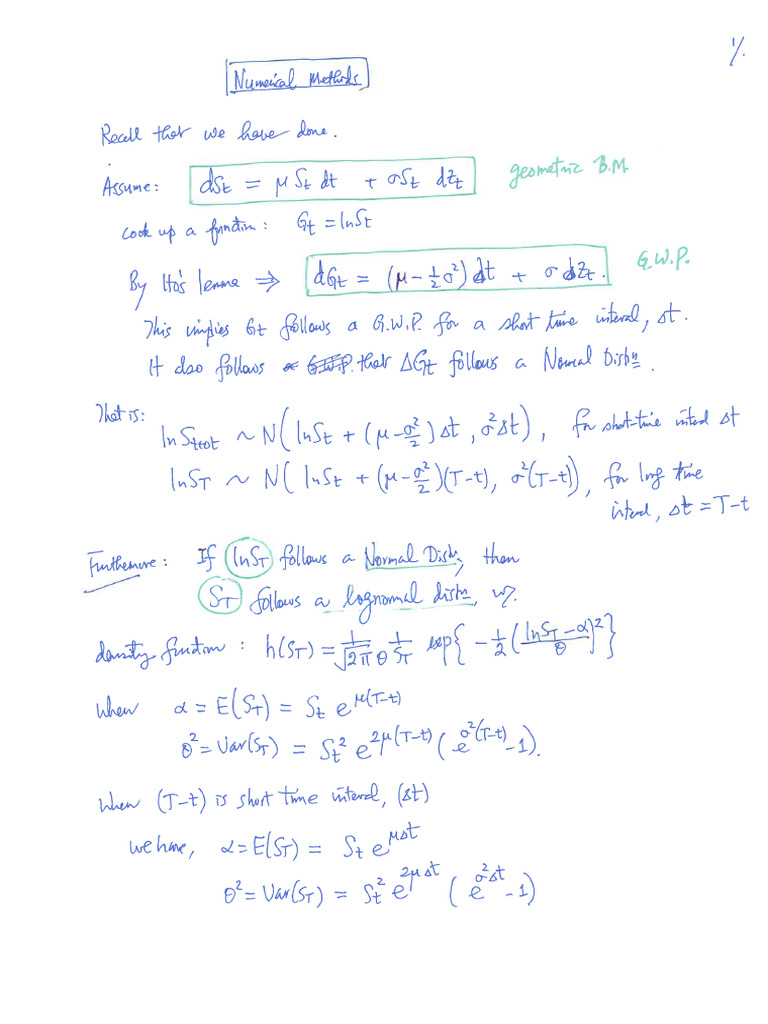 1/.
Numerical Methods
Recall that we have done.
Assume: dS_t = μ S_t dt + σS_t dz_t geometric B.M.
Cook up a function: G_t = lnS_t
By Ito's lemma ⇒ dG_t = (μ - ½σ²) dt + σ dz_t. G.W.P.
This implies G_t follows a G.W.P. for a short time interval, Δt.
It also follows that ΔG_t follows a Normal Dist=n.
That is: lnS_{t+Δt} ~ N( lnS_t + (μ - σ²/2) Δt , σ²Δt ) , for short-time interval Δt
lnS_T ~ N( lnS_t + (μ - σ²/2)(T-t), σ²(T-t)) , for long time
interval, Δt = T-t
Furthermore: If lnS_T follows a Normal Dist=n, then
S_T follows a lognormal dist=n, w/.
density function : h(S_T) = 1/(√2π θ) 1/S_T exp{ -½ ( (lnS_T - α)/θ )² }
When α = E(S_T) = S_t e^{μ(T-t)}
θ² = Var(S_T) = S_t² e^{2μ(T-t)} ( e^{σ²(T-t)} -1).
When (T-t) is short time interval, (Δt)
we have, α = E(S_T) = S_t e^{μΔt}
θ² = Var(S_T) = S_t² e^{2μΔt} ( e^{σ²Δt} -1)